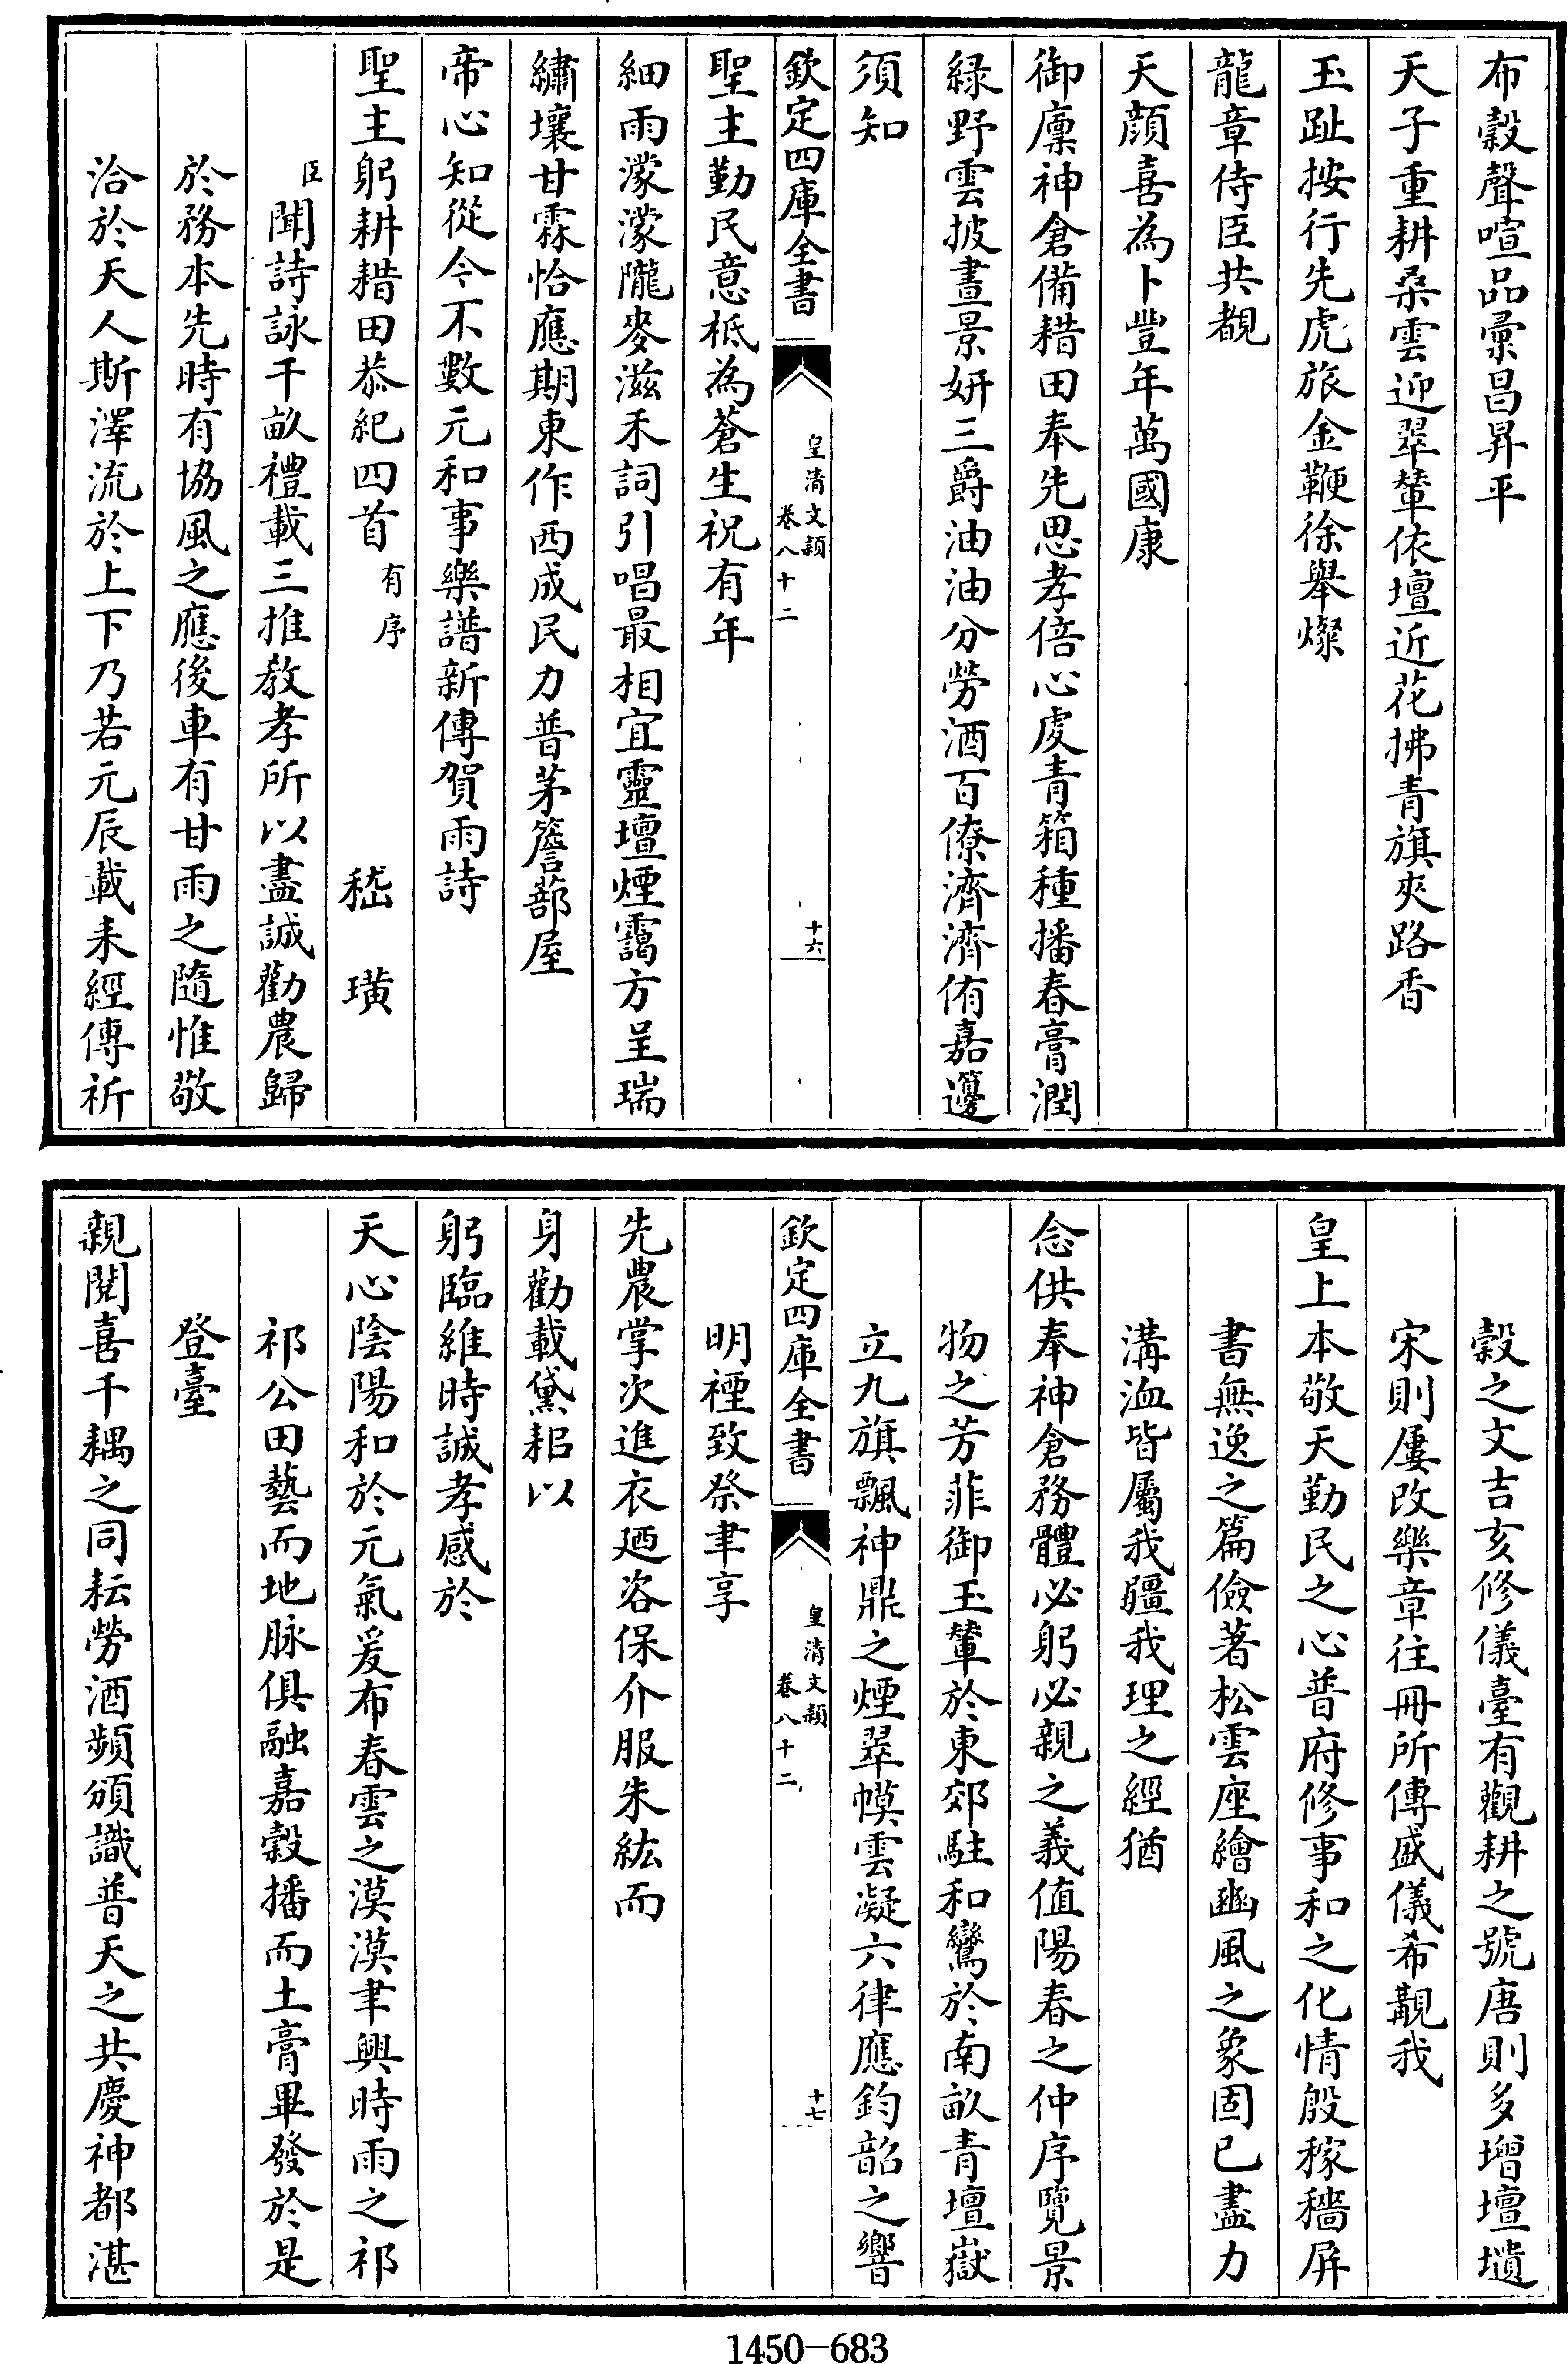 布穀聲喧品彙昌昇平
天子重耕桑雲迎翠輦依壇近花拂青旗夾路香
玉趾按行先虎旅金鞭徐舉燦
龍章侍臣共覩
天顔喜為卜豐年萬國康
御廩神倉備耤田奉先思孝倍心虔青箱種播春膏潤
緑野雲披晝景妍三爵油油分勞酒百僚濟濟侑嘉籩
須知
欽定四庫全書
皇清文穎
卷八十二
十六
聖主勤民意柢為蒼生祝有年
細雨濛濛隴麥滋禾詞引唱最相宜靈壇煙靄方呈瑞
繡壤甘霖恰應期東作西成民力普茅簷蔀屋
帝心知從今不數元和事樂譜新傳賀雨詩
聖主躬耕耤田恭紀四首有序 嵇璜
臣聞詩詠千畝禮載三推教孝所以盡誠勸農歸
於務本先時有協風之應後車有甘雨之隨惟敬
洽於天人斯澤流於上下乃若元辰載耒經傳祈
穀之文吉亥修儀臺有觀耕之號唐則多增壇壝
宋則屢改樂章往冊所傳盛儀希覯我
皇上本敬天勤民之心普府修事和之化情殷稼穡屏
書無逸之篇儉著松雲座繪豳風之象固已盡力
溝洫皆屬我疆我理之經猶
念供奉神倉務體必躬必親之義值陽春之仲序覽景
物之芳菲御玉輦於東郊駐和鸞於南畝青壇嶽
立九旗飄神鼎之煙翠幙雲凝六律應鈞韶之響
欽定四庫全書
皇清文穎
卷八十二
十七
明禋致祭聿享
先農掌次進衣廼咨保介服朱紘而
身勸載黛耜以
躬臨維時誠孝感於
天心陰陽和於元氣爰布春雲之漠漠聿興時雨之祁
祁公田藝而地脉俱融嘉穀播而土膏畢發於是
登臺
親閱喜千耦之同耘勞酒頻頒識普天之共慶神都湛
1450-683